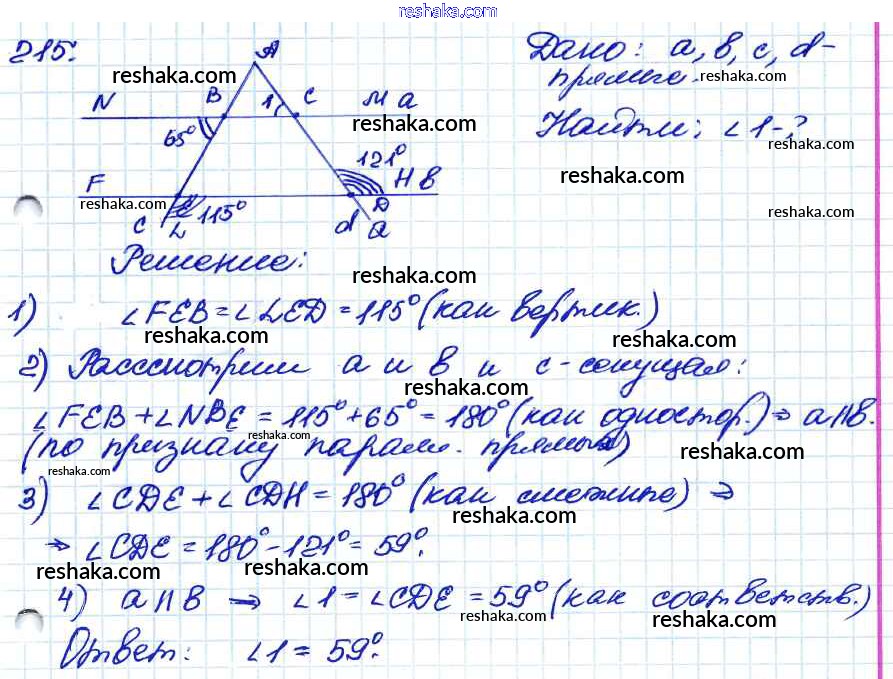 reshaka.com
215.
A
Дано: a, b, c, d-
прямые.
reshaka.com
reshaka.com
N B 1 C M a
reshaka.com
Найти: ∠1-?
reshaka.com
65°
121°
F H b
reshaka.com
reshaka.com
reshaka.com
c L 115° d D a
Решение:
reshaka.com
1) ∠FEB = ∠LED = 115° (как вертик.)
reshaka.com
2) Рассмотрим a и b и c - секущая:
reshaka.com
∠FEB + ∠NBE = 115° + 65° = 180° (как одностор.) ⇒ a || b.
reshaka.com
(по признаку паралл. прямых)
reshaka.com
reshaka.com
3) ∠CDE + ∠CDH = 180° (как смежные) ⇒
reshaka.com
⇒ ∠CDE = 180° - 121° = 59°.
reshaka.com reshaka.com
4) a || b ⇒ ∠1 = ∠CDE = 59° (как соответств.)
reshaka.com reshaka.com
Ответ: ∠1 = 59°.